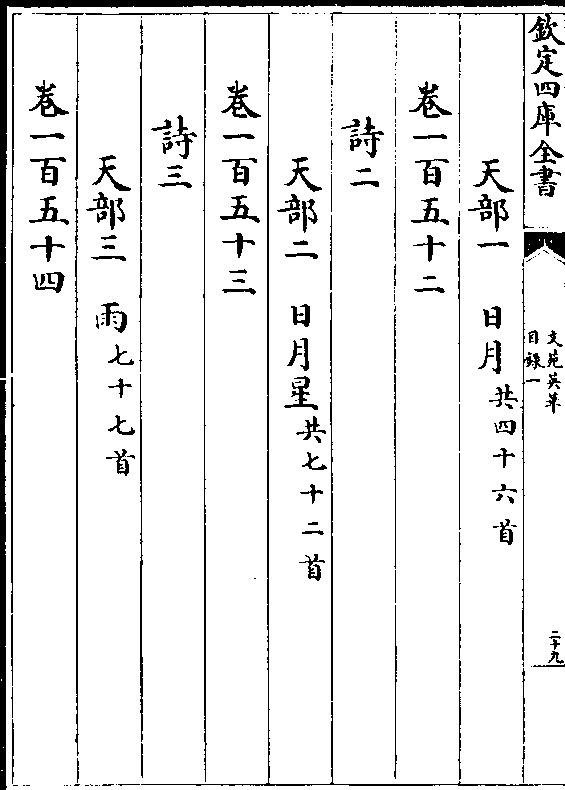 欽定四庫全書
文苑英華
目錄一
二十九
天部一　日月共四十六首
卷一百五十二
詩二
天部二　日月星共七十二首
卷一百五十三
詩三
天部三　雨七十七首
卷一百五十四